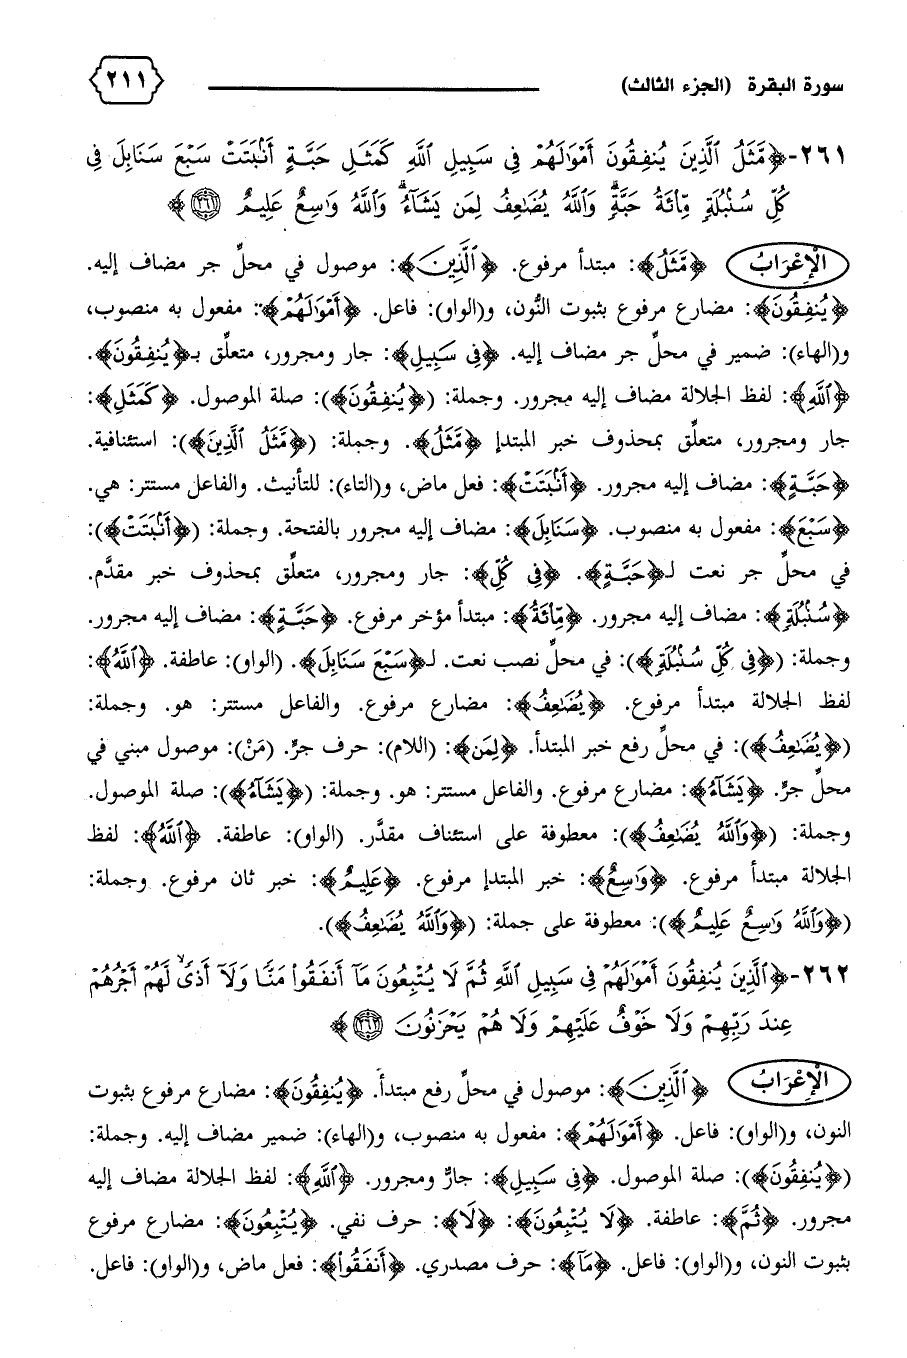 سورة البقرة (الجزء الثالث)
٢١١
٢٦١-﴿مَّثَلُ ٱلَّذِينَ يُنفِقُونَ أَمْوَٰلَهُمْ فِى سَبِيلِ ٱللَّهِ كَمَثَلِ حَبَّةٍ أَنۢبَتَتْ سَبْعَ سَنَابِلَ فِى
كُلِّ سُنۢبُلَةٍ مِّا۟ئَةُ حَبَّةٍۗ وَٱللَّهُ يُضَٰعِفُ لِمَن يَشَآءُۗ وَٱللَّهُ وَٰسِعٌ عَلِيمٌ ۝٢٦١﴾
الْإِعْرَابُ ﴿مَّثَلُ﴾: مبتدأ مرفوع. ﴿ٱلَّذِينَ﴾: موصول في محلِّ جر مضاف إليه.
﴿يُنفِقُونَ﴾: مضارع مرفوع بثبوت النُّون، و(الواو): فاعل. ﴿أَمْوَٰلَهُمْ﴾: مفعول به منصوب،
و(الهاء): ضمير في محلِّ جر مضاف إليه. ﴿فِى سَبِيلِ﴾: جار ومجرور، متعلِّق بـ﴿يُنفِقُونَ﴾.
﴿ٱللَّهِ﴾: لفظ الجلالة مضاف إليه مجرور. وجملة: (﴿يُنفِقُونَ﴾): صلة الموصول. ﴿كَمَثَلِ﴾:
جار ومجرور، متعلِّق بمحذوف خبر المبتدإ ﴿مَّثَلُ﴾. وجملة: (﴿مَّثَلُ ٱلَّذِينَ﴾): استئنافية.
﴿حَبَّةٍ﴾: مضاف إليه مجرور. ﴿أَنۢبَتَتْ﴾: فعل ماض، و(التاء): للتأنيث. والفاعل مستتر: هي.
﴿سَبْعَ﴾: مفعول به منصوب. ﴿سَنَابِلَ﴾: مضاف إليه مجرور بالفتحة. وجملة: (﴿أَنۢبَتَتْ﴾):
في محلِّ جر نعت لـ﴿حَبَّةٍ﴾. ﴿فِى كُلِّ﴾: جار ومجرور، متعلِّق بمحذوف خبر مقدَّم.
﴿سُنۢبُلَةٍ﴾: مضاف إليه مجرور. ﴿مِّا۟ئَةُ﴾: مبتدأ مؤخر مرفوع. ﴿حَبَّةٍ﴾: مضاف إليه مجرور.
وجملة: (﴿فِى كُلِّ سُنۢبُلَةٍ﴾): في محلِّ نصب نعت. لـ﴿سَبْعَ سَنَابِلَ﴾. (الواو): عاطفة. ﴿ٱللَّهُ﴾:
لفظ الجلالة مبتدأ مرفوع. ﴿يُضَٰعِفُ﴾: مضارع مرفوع. والفاعل مستتر: هو. وجملة:
(﴿يُضَٰعِفُ﴾): في محلِّ رفع خبر المبتدأ. ﴿لِمَن﴾: (اللام): حرف جرٍّ. (مَنْ): موصول مبني في
محلِّ جرٍّ. ﴿يَشَآءُ﴾: مضارع مرفوع. والفاعل مستتر: هو. وجملة: (﴿يَشَآءُ﴾): صلة الموصول.
وجملة: (﴿وَٱللَّهُ يُضَٰعِفُ﴾): معطوفة على استئناف مقدَّر. (الواو): عاطفة. ﴿ٱللَّهُ﴾: لفظ
الجلالة مبتدأ مرفوع. ﴿وَٰسِعٌ﴾: خبر المبتدإ مرفوع. ﴿عَلِيمٌ﴾: خبر ثان مرفوع. وجملة:
(﴿وَٱللَّهُ وَٰسِعٌ عَلِيمٌ﴾): معطوفة على جملة: (﴿وَٱللَّهُ يُضَٰعِفُ﴾).
٢٦٢-﴿ٱلَّذِينَ يُنفِقُونَ أَمْوَٰلَهُمْ فِى سَبِيلِ ٱللَّهِ ثُمَّ لَا يُتْبِعُونَ مَآ أَنفَقُوا۟ مَنًّا وَلَآ أَذًىۙ لَّهُمْ أَجْرُهُمْ
عِندَ رَبِّهِمْ وَلَا خَوْفٌ عَلَيْهِمْ وَلَا هُمْ يَحْزَنُونَ ۝٢٦٢﴾
الْإِعْرَابُ ﴿ٱلَّذِينَ﴾: موصول في محلِّ رفع مبتدأ. ﴿يُنفِقُونَ﴾: مضارع مرفوع بثبوت
النون، و(الواو): فاعل. ﴿أَمْوَٰلَهُمْ﴾: مفعول به منصوب، و(الهاء): ضمير مضاف إليه. وجملة:
(﴿يُنفِقُونَ﴾): صلة الموصول. ﴿فِى سَبِيلِ﴾: جارٌّ ومجرور. ﴿ٱللَّهِ﴾: لفظ الجلالة مضاف إليه
مجرور. ﴿ثُمَّ﴾: عاطفة. ﴿لَا يُتْبِعُونَ﴾: ﴿لَا﴾: حرف نفي. ﴿يُتْبِعُونَ﴾: مضارع مرفوع
بثبوت النون، و(الواو): فاعل. ﴿مَآ﴾: حرف مصدري. ﴿أَنفَقُوا۟﴾: فعل ماض، و(الواو): فاعل.